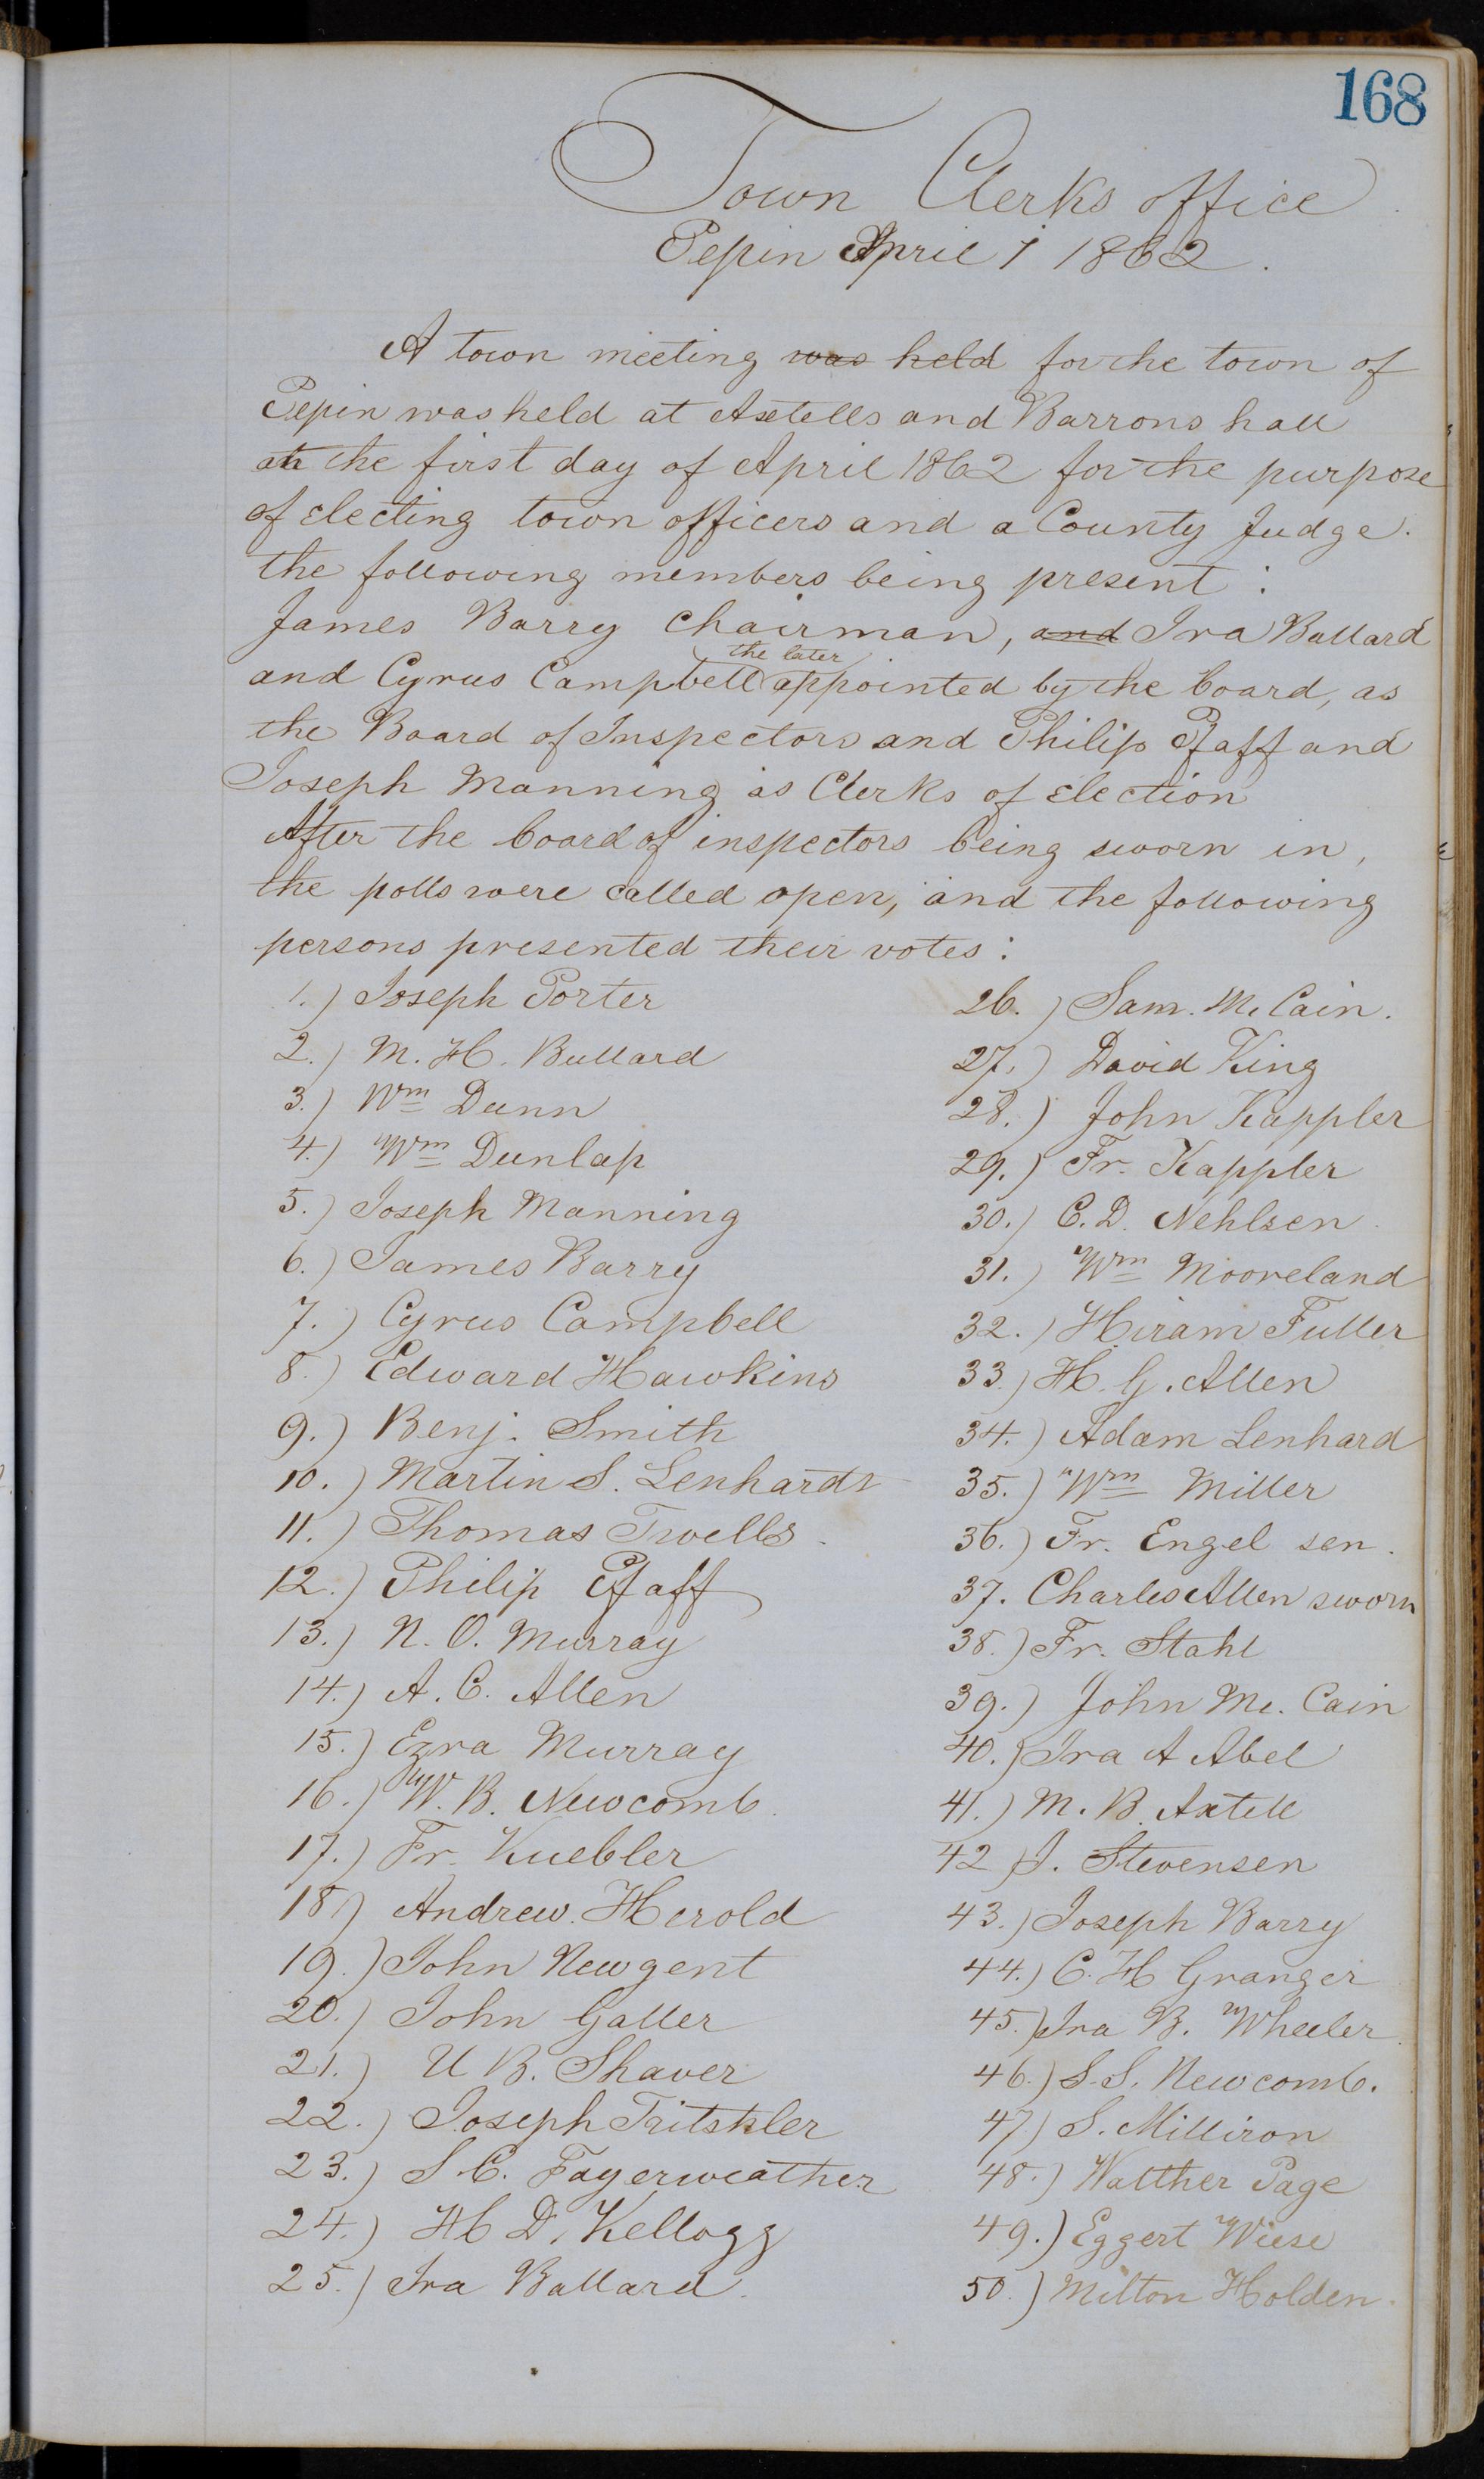 168
Town Clerks office
Pepin April 1 1862.
A town meeting was held for the town of
Pepin was held at Axtells and Barrons hall
on the first day of April 1862 for the purpose
of electing town officers and a County Judge.
the following members being present:
James Barry Chairman, and Ira Ballard
the later
and Cyrus Campbell appointed by the board, as
the Board of Inspectors and Philip Pfaff and
Joseph Manning as Clerks of election
After the board of inspectors being sworn in,
the polls were called open, and the following
persons presented their votes:
1.) Joseph Porter
2.) M. H. Bullard
3.) Wm Dunn
4.) Wm Dunlap
5.) Joseph Manning
6.) James Barry
7.) Cyrus Campbell
8.) Edward Hawkins
9.) Benj. Smith
10.) Martin S. Lenhardt
11.) Thomas Twells.
12.) Philip Pfaff
13.) N. O. Murray
14.) A. C. Allen
15.) Ezra Murray
16.) W. B. Newcomb.
17.) Fr. Kuebler
18.) Andrew Herold
19.) John Newgent
20.) John Galler
21.) U B. Shaver
22.) Joseph Tritshler
23.) S. C. Fayerweather
24.) H D. Kellogg
25.) Ira Ballard.
26.) Sam. Mc Cain.
27.) David King
28.) John Kappler
29.) Fr. Kappler
30.) C. D. Nehlsen.
31.) Wm Mooreland
32.) Hiram Fuller
33.) H. G. Allen
34.) Adam Lenhard
35.) Wm Miller
36.) Fr. Engel sen.
37. Charles Allen sworn
38.) Fr. Stahl
39.) John Mc. Cain
40.) Ira A Abel
41.) M. B. Axtell
42.) J. Stevensen
43.) Joseph Barry
44.) C. H Granger
45.) Ira B. Wheeler.
46.) S. S. Newcomb.
47.) S. Milliron
48.) Walther Page
49.) Eggert Wiese
50.) Milton Holden.